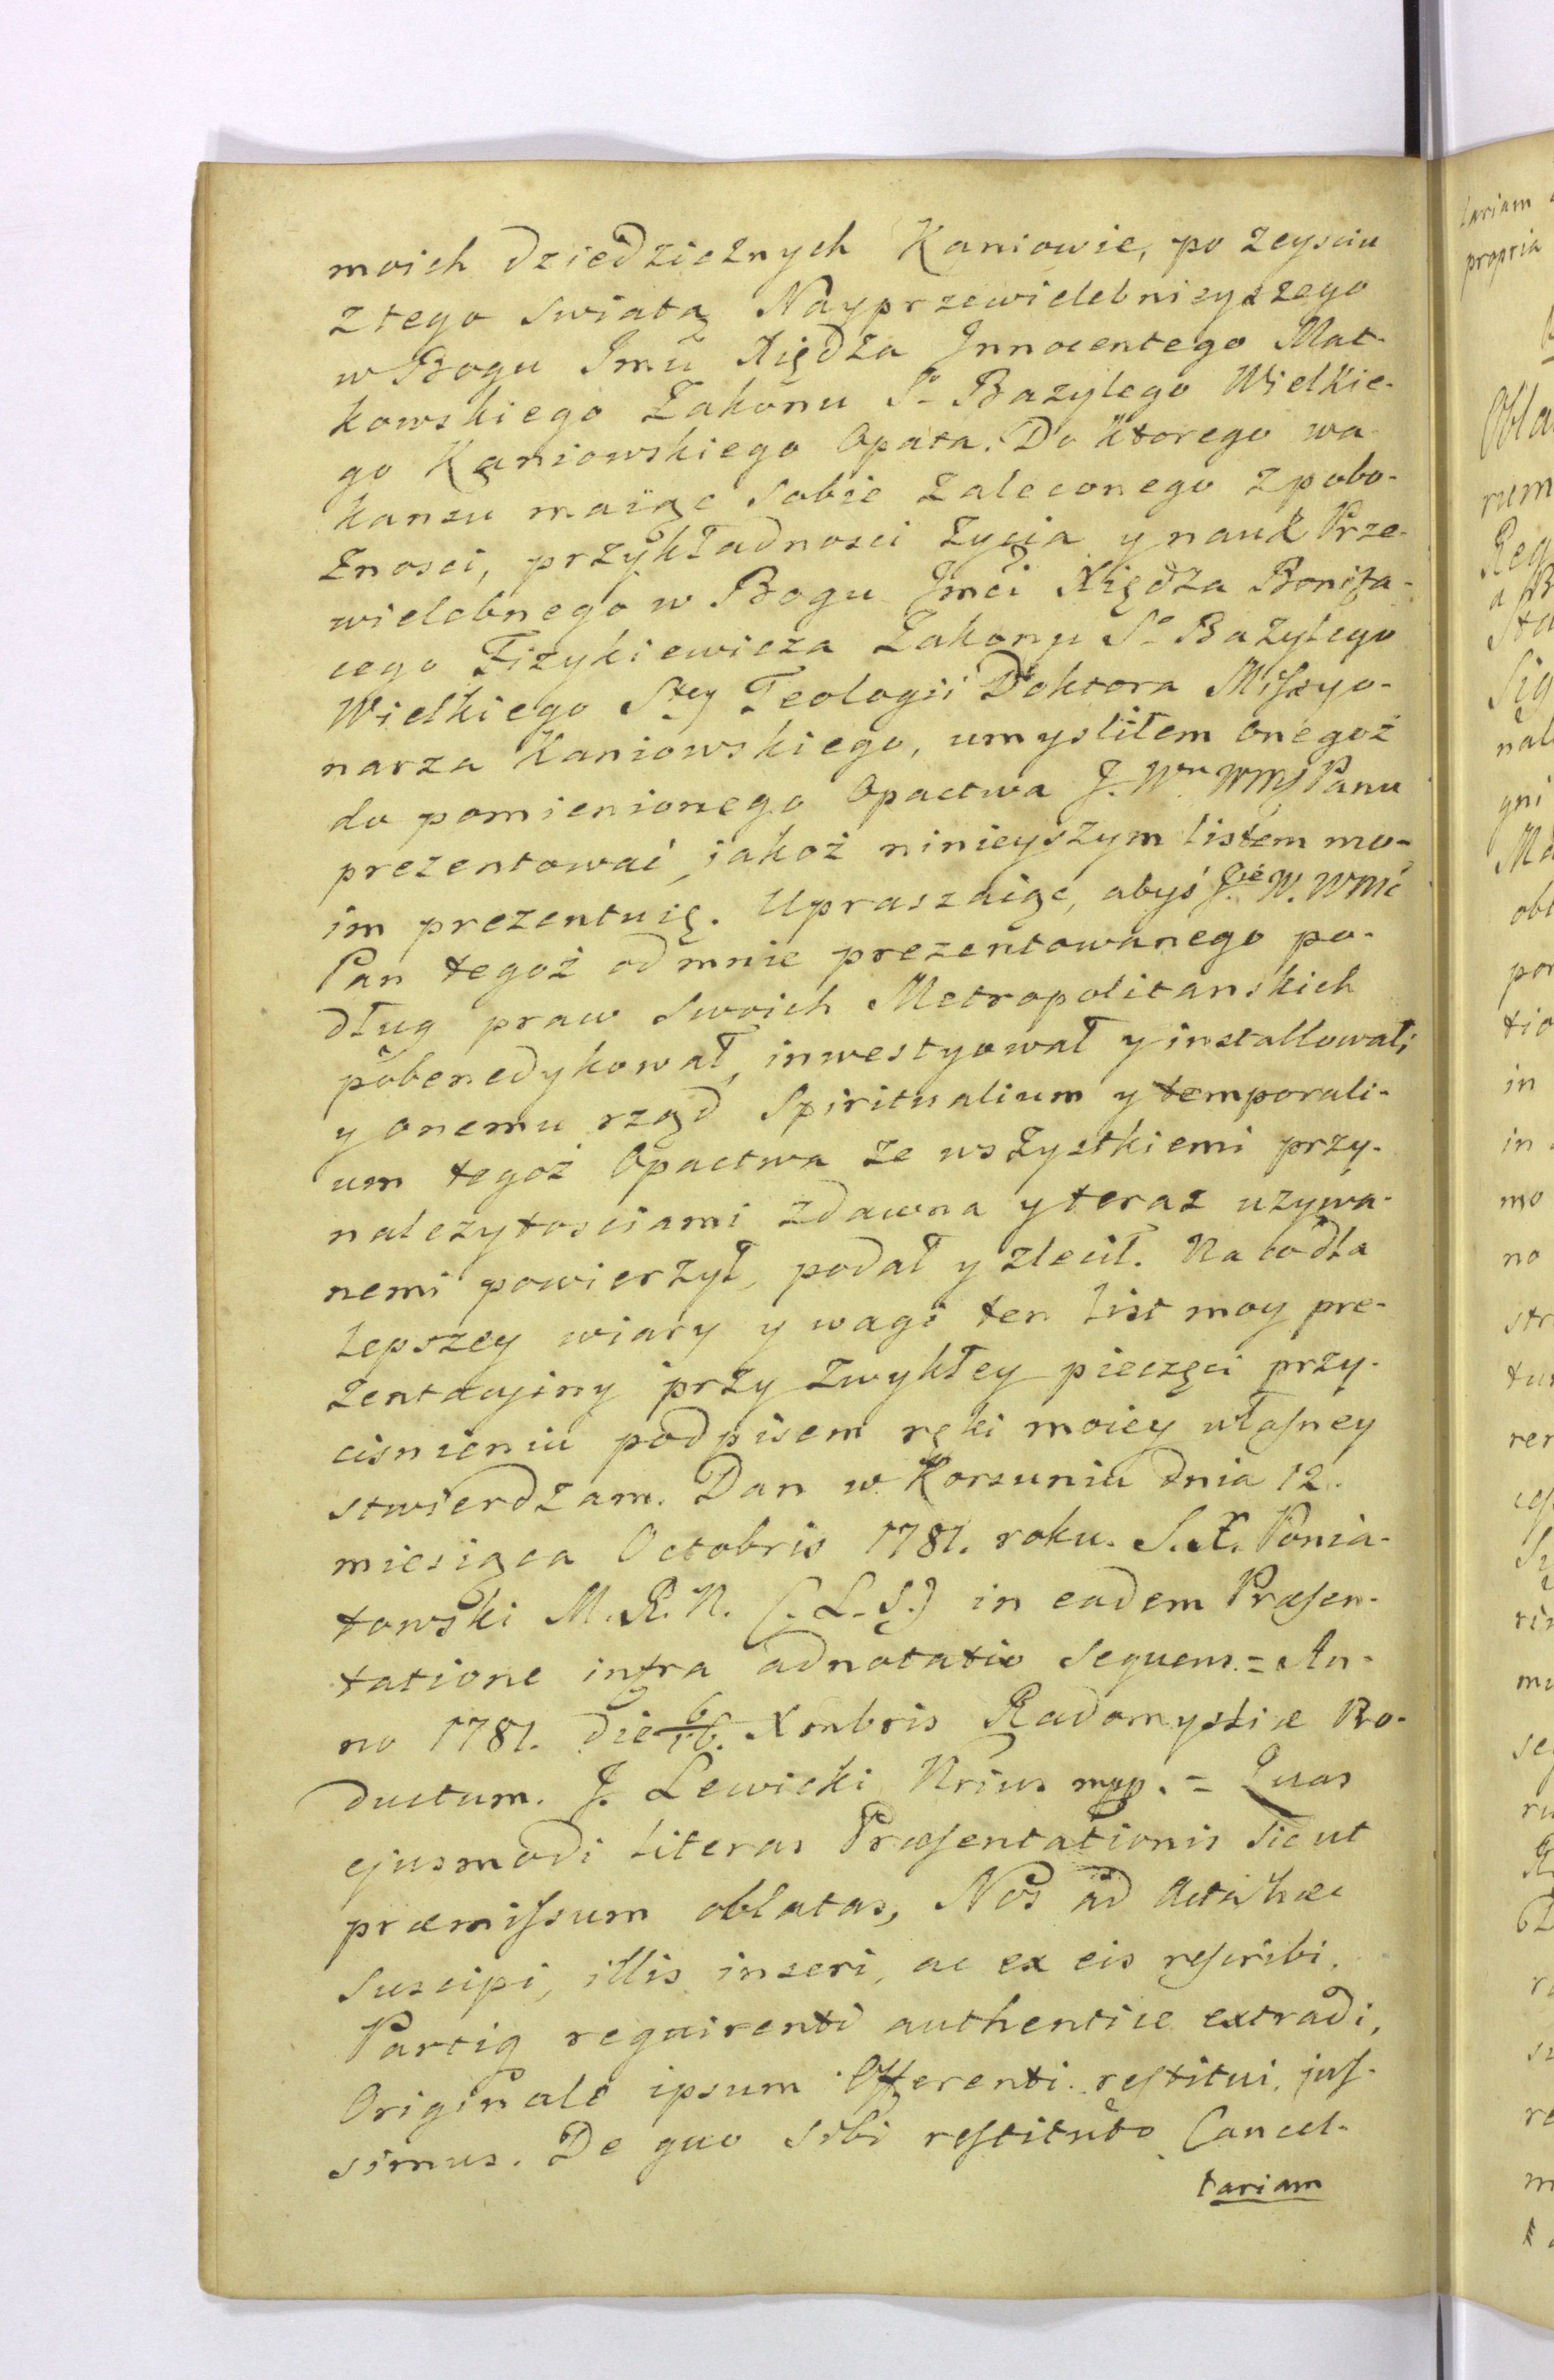 moich dziedzicznych Kaniowie, po zeysciu
z tego swiata Nayprzewielebnieyszego
w Bogu Jmci Xiędza Jnnocentego Mat-
kowskiego Zakonu So Bazylego Wielkie-
go Kaniowskiego Opata. Do ktorego wa-
kansu maiąc sobie zaleconego z pobo-
żnosci, przykładnosci życia y nauk Prze-
wielebnego w Bogu Jmci Xiędza Bonifa-
cego Fizykiewicza Zakonu So Bazylego
Wielkiego Stey Teologii Doktora Missyo-
narza Kaniowskiego, umysliłem onegoż
do pomienionego Opactwa J. Wu WMŚ Panu
prezentować, jakoż ninieyszym listem mo-
im prezentuię. Upraszaiąc, abyś J. W. WMć
Pan tegoż od mnie prezentowanego po-
dług praw swoich Metropolitanskich
pobenedykował, inwestyował y installował;
y onemu rząd Spiritualium y temporali-
um tegoż Opactwa ze wszystkiemi przy-
nalezytosciami zdawna y teraz uzywa-
nemi powierzył, podał y zlecił. Na co dla
lepszey wiary y wagi ten list moy pre-
zentacyiny przy zwykłey pieczęci przy-
cisnieniu podpisem ręki moiey własney
stwierdzam. Dan w Korsuniu dnia 12.
miesiąca Octobris 1781. roku. S. X. Ponia-
towski M. R. N. (. L. S.) in eadem Præsen-
tatione infra adnotatio sequens. = An-
no 1781. die 6/16. Xmbris Radomysliæ Pro-
ductum. J. Lewicki Nrius mpp. = Quas
ejusmodi literas Præsentationis sicut
præmissum oblatas, Nos ad Acta hæc
suscipi, illis inseri, ac ex eis rescribi,
Partiq requirenti authentice extradi,
Originale ipsum Offerenti restitui, jus-
simus. De quo sibi restituto Cancel-
lariam